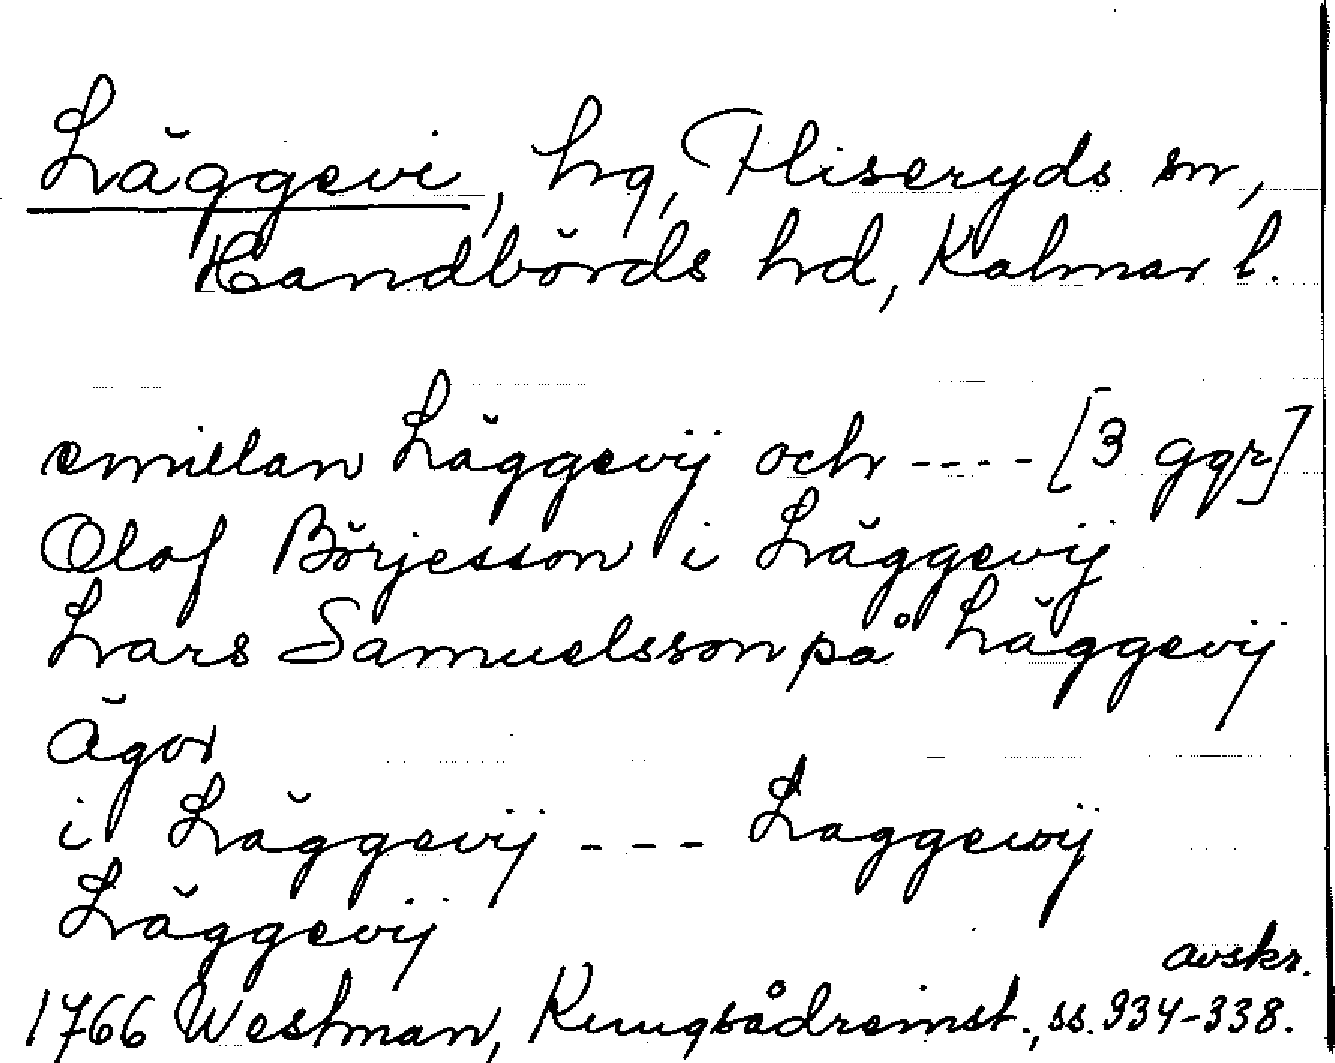 Läggevi, hg, Fliseryds sn,
Handbörds hd, Kalmar l.
emillan Läggevij och ---- [3 ggr]
Olof Börjesson i Läggevij
Lars Samuelsson på Läggevij
Ägor
i Läggevij --- Laggewij
Läggevij
avskr.
1766 Westman, Kungsådreinst., ss. 334-338.